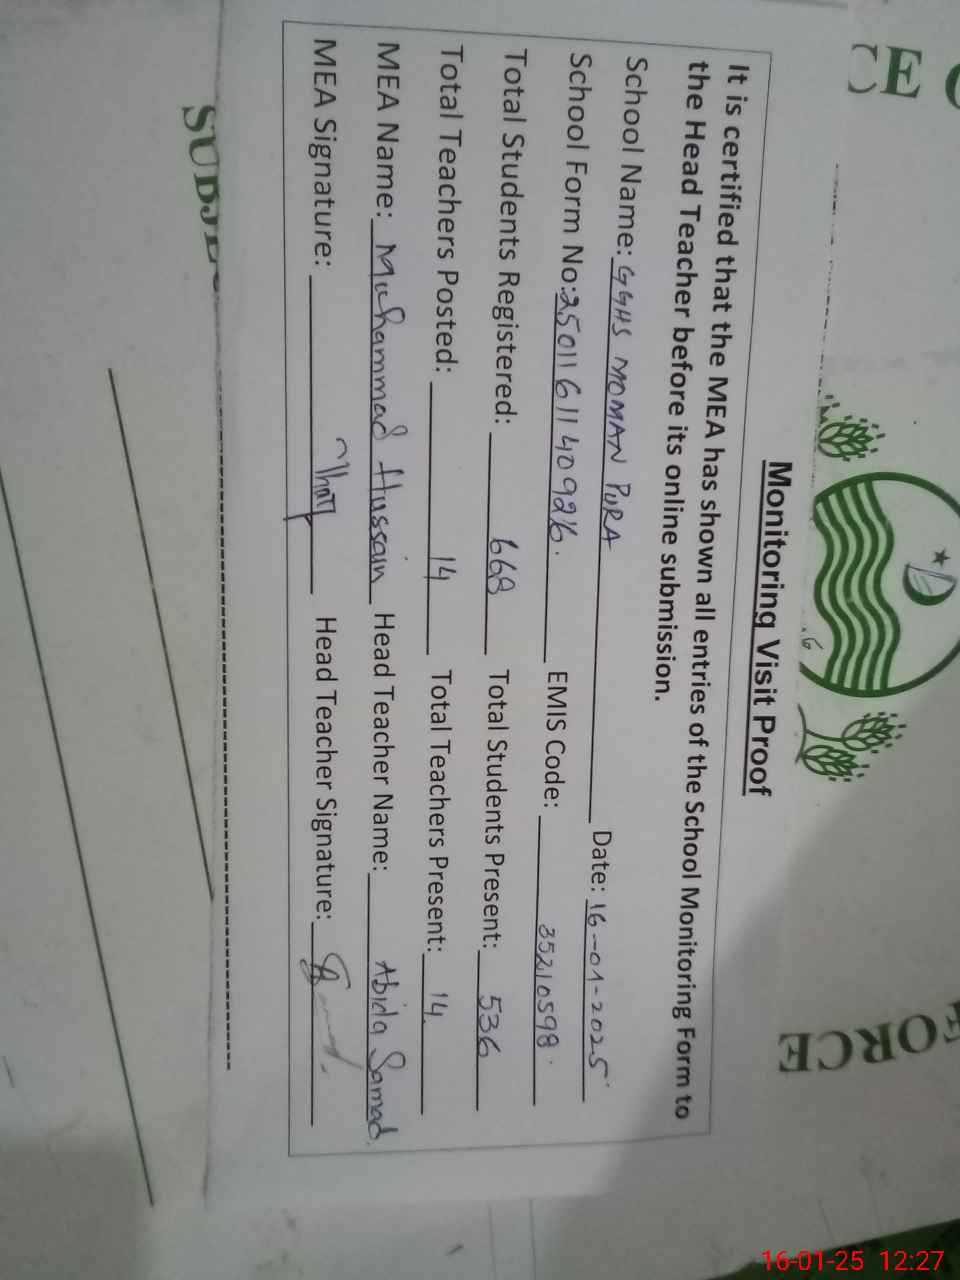 FORCE
Monitoring Visit Proof
It is certified that the MEA has shown all entries of the School Monitoring Form to
the Head Teacher before its online submission.
School Name: GGHS MOMAN PURA Date: 16-01-2025
School Form No: 25011611409226. EMIS Code: 35210598
Total Students Registered: 668 Total Students Present: 536
Total Teachers Posted: 14 Total Teachers Present: 14.
MEA Name: Muhammad Hussain Head Teacher Name: Abida Samad.
MEA Signature: Head Teacher Signature:
16-01-25 12:27